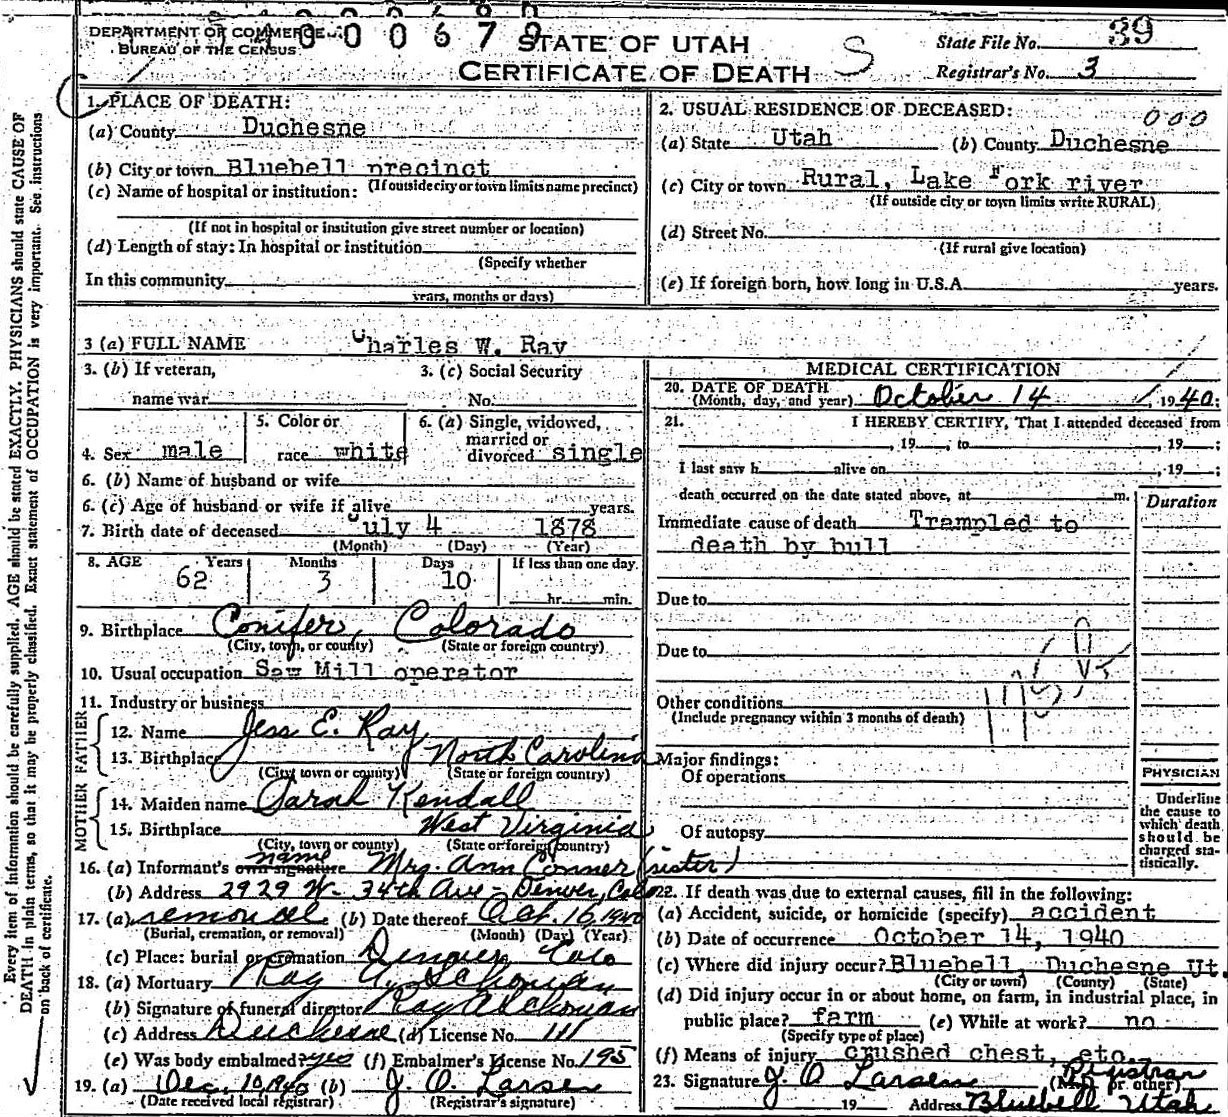 DEPARTMENT OF COMMERCE
BUREAU OF THE CENSUS
STATE OF UTAH
CERTIFICATE OF DEATH
S
State File No. 39
Registrar's No. 3
Every item of information should be carefully supplied. AGE should be stated EXACTLY. PHYSICIANS should state CAUSE OF
DEATH in plain terms, so that it may be properly classified. Exact statement of OCCUPATION is very important. See instructions
on back of certificate.
1. PLACE OF DEATH:
(a) County Duchesne
(b) City or town Bluebell precinct
(If outside city or town limits name precinct)
(c) Name of hospital or institution:
(If not in hospital or institution give street number or location)
(d) Length of stay: In hospital or institution
(Specify whether
In this community
years, months or days)
2. USUAL RESIDENCE OF DECEASED:
000
(a) State Utah (b) County Duchesne
(c) City or town Rural, Lake Fork river
(If outside city or town limits write RURAL)
(d) Street No.
(If rural give location)
(e) If foreign born, how long in U.S.A. years.
3 (a) FULL NAME Charles W. Ray
3. (b) If veteran,
name war
3. (c) Social Security
No.
4. Sex male
5. Color or
race white
6. (a) Single, widowed,
married or
divorced single
6. (b) Name of husband or wife
6. (c) Age of husband or wife if alive years.
7. Birth date of deceased July 4 1878
(Month) (Day) (Year)
8. AGE Years Months Days If less than one day.
62 3 10 hr. min.
9. Birthplace Conifer, Colorado
(City, town, or county) (State or foreign country)
10. Usual occupation Saw Mill operator
11. Industry or business
FATHER
12. Name Jess E. Ray
13. Birthplace North Carolina
(City, town or county) (State or foreign country)
MOTHER
14. Maiden name Sarah Kendall
15. Birthplace West Virginia
(City, town or county) (State or foreign country)
name
16. (a) Informant's own signature Mrs. Ann Conner (sister)
(b) Address 2929 W- 34th Ave - Denver, Colo
17. (a) removal (b) Date thereof Oct. 16, 1940
(Burial, cremation, or removal) (Month) (Day) (Year)
(c) Place: burial or cremation Denver Colo
18. (a) Mortuary Ray A. Schonian
(b) Signature of funeral director Ray A Schonian
(c) Address Duchesne (d) License No. 111
(e) Was body embalmed? yes (f) Embalmer's License No. 195
19. (a) Dec. 10, 1940 (b) J. O. Larsen
(Date received local registrar) (Registrar's signature)
MEDICAL CERTIFICATION
20. DATE OF DEATH
(Month, day, and year) October 14, 1940:
21. I HEREBY CERTIFY, That I attended deceased from
, 19 , to , 19 ;
I last saw h alive on , 19 ;
death occurred on the date stated above, at m.
Duration
Immediate cause of death Trampled to
death by bull
Due to
Due to
Other conditions
(Include pregnancy within 3 months of death)
Major findings:
Of operations
Of autopsy
PHYSICIAN
Underline
the cause to
which death
should be
charged sta-
tistically.
22. If death was due to external causes, fill in the following:
(a) Accident, suicide, or homicide (specify) accident
(b) Date of occurrence October 14, 1940
(c) Where did injury occur? Bluebell, Duchesne Ut.
(City or town) (County) (State)
(d) Did injury occur in or about home, on farm, in industrial place, in
public place? farm (e) While at work? no
(Specify type of place)
(f) Means of injury crushed chest, etc.
23. Signature J. O Larsen Registrar
(M.D. or other)
19 Address Bluebell Utah